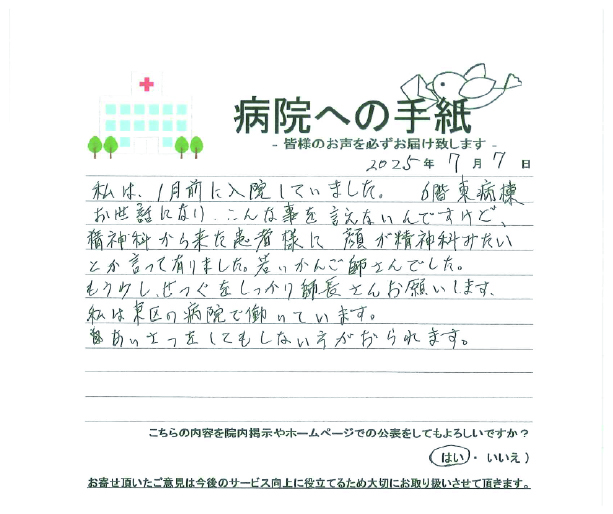 病院への手紙
- 皆様のお声を必ずお届け致します -
2025年 7月 7日
私は、1月前に入院していました。 6階東病棟
お世話になり、こんな事を言えないんですけど、
精神科から来た患者様に 顔が精神科みたい
とか言って有りました。若いかんご師さんでした。
もう少し、せつぐをしっかり師長さんお願いします、
私は東区の病院で働いています。
あいさつをしてもしない方がおられます。
こちらの内容を院内掲示やホームページでの公表をしてもよろしいですか？
(はい・いいえ)
お寄せ頂いたご意見は今後のサービス向上に役立てるため大切にお取り扱いさせて頂きます。